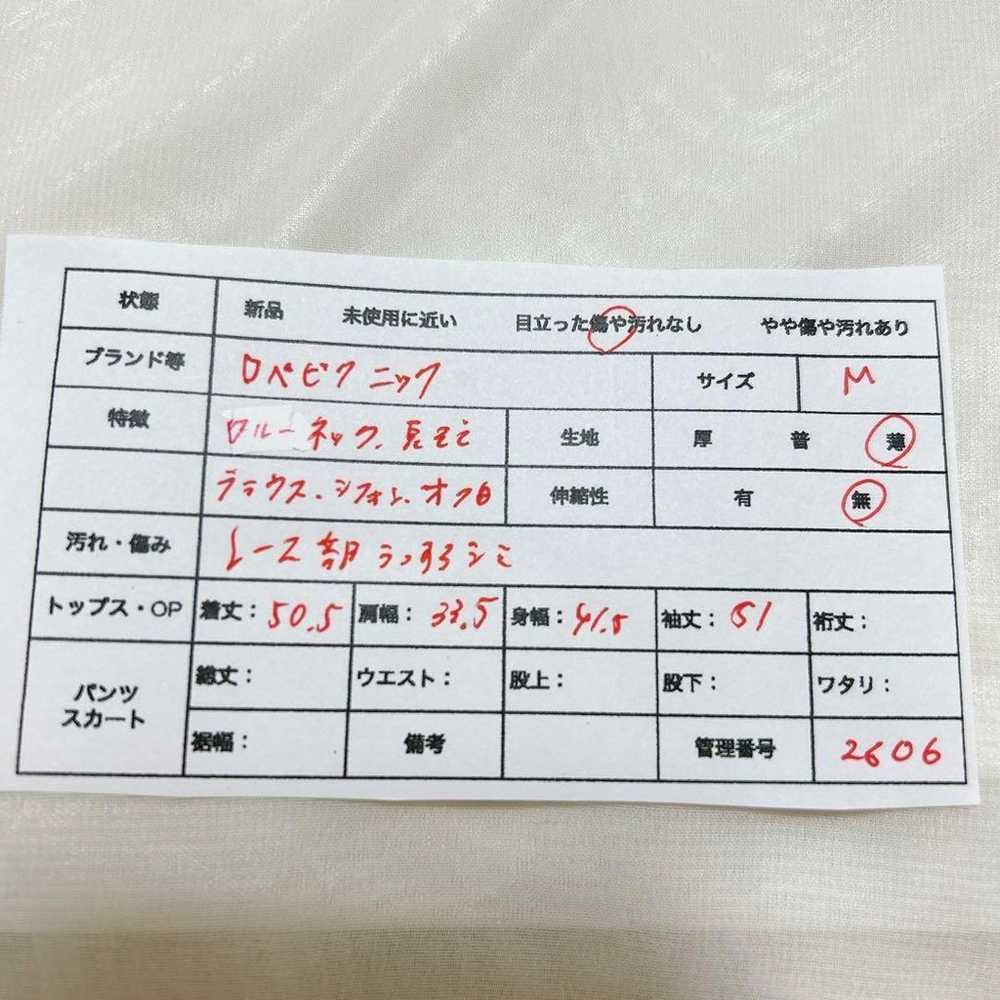 状態 新品 未使用に近い 目立った傷や汚れなし やや傷や汚れあり
ブランド等 ロペピクニック サイズ M
特徴 ネック、 生地 厚 普 薄
ブラウス、シフォン、オフ白 伸縮性 有 無
汚れ・傷み レース部うっすらシミ
トップス・OP 着丈：50.5 肩幅：33.5 身幅：41.5 袖丈：51 裄丈：
パンツ スカート 総丈： ウエスト： 股上： 股下： ワタリ：
裾幅： 備考 管理番号 2606